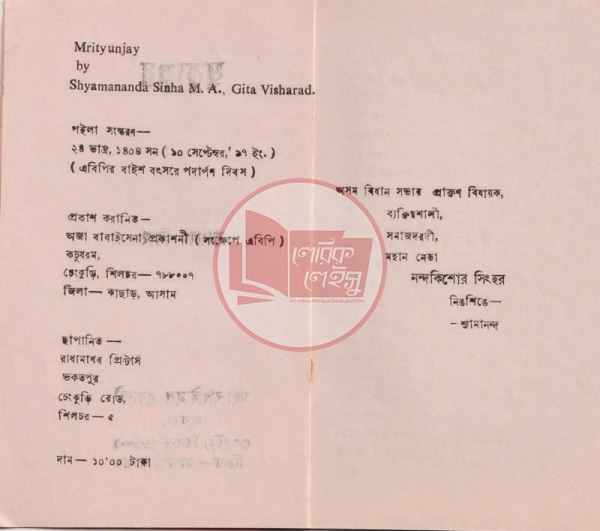 Mrityunjay
by
Shyamananda Sinha M. A., Gita Visharad.
পইলা সংস্করণ—
২৪ ভাদ্র, ১৪০৪ সন ( ১০ সেপ্টেম্বর,' ৯৭ ইং. )
( এবিপির বাইশ বৎসরে পদার্পণ দিবস )
প্রকাশ করানিত—
অজা বাবাইসেনা প্রকাশনী ( সংক্ষেপে এবিপি )
কচুধরম,
চেংকুড়ি, শিলচর— ৭৮৮০০৭
জিলা— কাছাড়, আসাম
ছাপানিত—
রাধামাধৱ প্রিন্টার্স
ভকতপুর
চেংকুড়ি রোড,
শিলচর— ৫
দাম— ১০'০০ টাকা
অসম ৱিধান সভাৱ প্রাক্তণ ৱিধায়ক,
ব্যক্তিত্বশালী,
সমাজদরদী,
মহান নেতা
নন্দকিশোর সিংহর
নিঙশিঙে—
- শ্যামানন্দ
পৌরিক
পেইসু